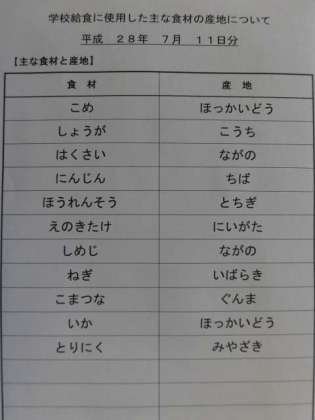 学校給食に使用した主な食材の産地について
平成 28年 7月 11日分
【主な食材と産地】
食材 産地
こめ ほっかいどう
しょうが こうち
はくさい ながの
にんじん ちば
ほうれんそう とちぎ
えのきたけ にいがた
しめじ ながの
ねぎ いばらき
こまつな ぐんま
いか ほっかいどう
とりにく みやざき